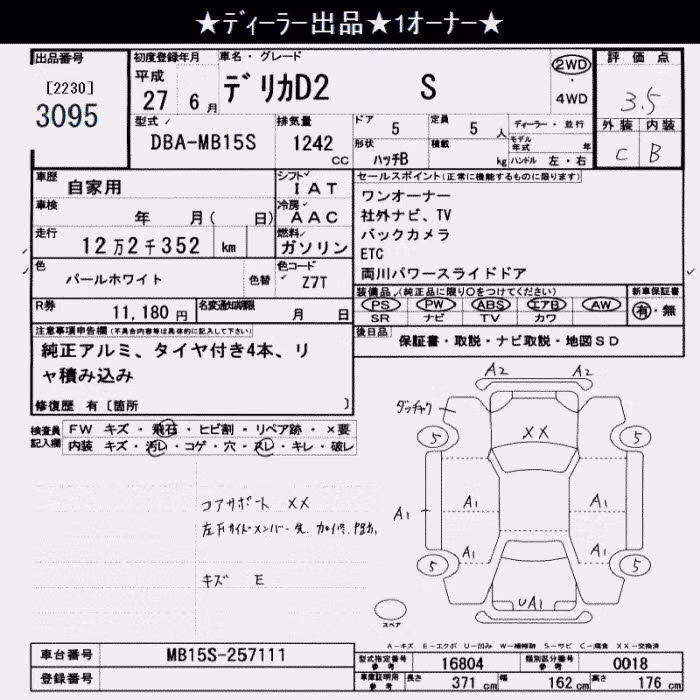 ★ディーラー出品★1オーナー★
出品番号
[2230]
3095
初度登録年月
平成
27 6 月
車名・グレード
デリカD2 S
2WD
・
4WD
評価点
3.5
外装 内装
C B
型式
DBA-MB15S
排気量
1242
cc
ドア
5
定員
5 人
ディーラー・並行
形状
ハッチB
積載
kg
モデル年式 年
ハンドル 左・右
車歴
自家用
シフト
I A T
車検
年 月( 日)
冷房
A A C
走行
12 万 2 千 352 km
燃料
ガソリン
色
パールホワイト
色替
色コード
Z7T
R券
11,180 円
名変通知期限
月 日
セールスポイント(正常に機能するものに限ります)
ワンオーナー
社外ナビ、TV
バックカメラ
ETC
両川パワースライドドア
装備品(純正品に限り○をつけてください)
PS PW ABS エアB AW
SR ナビ TV カワ
新車保証書
有・無
後日品
保証書・取説・ナビ取説・地図SD
注意事項申告欄(不具合内容等は具体的に記入して下さい)
純正アルミ、タイヤ付き4本、リ
ャ積み込み
修復歴 有[箇所 ]
検査員
記入欄
FW キズ・飛石・ヒビ割・リペア跡・×要
内装 キズ・汚レ・コゲ・穴・スレ・キレ・破レ
コアサポート XX
キズ E
A2 A2
5 5
XX
A1 A1 A1
A1 A1
5 5
UA1
スペア
A-キズ E-エクボ U-凹み W-補修跡 S-サビ C-腐食 XX-交換済
車台番号
MB15S-257111
登録番号
型式指定番号
参考
16804
類別区分番号
参考
0018
車庫証明用
参考
長さ
371 cm
幅
162 cm
高さ
176 cm